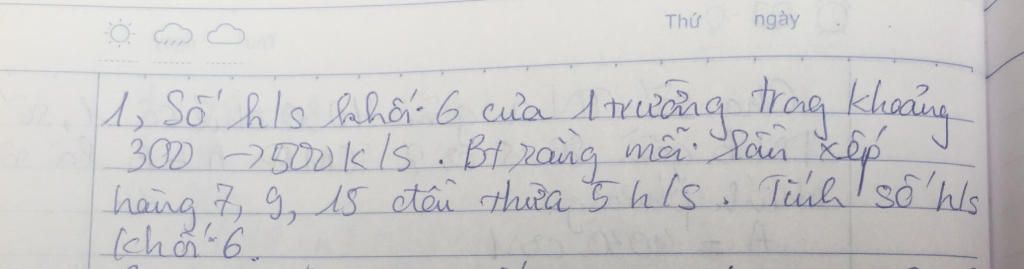 Thứ ngày
1, Số h/s khối 6 của 1 trường trog khoảng
300 → 500 h/s. Bt rằng mỗi lần xếp
hàng 7, 9, 15 đều thừa 5 h/s. Tính số h/s
khối 6.